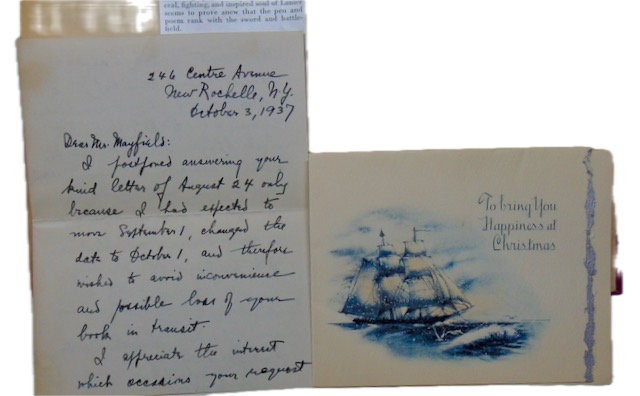 eral, fighting, and inspired soul of Lanier
seems to prove anew that the pen and
poem rank with the sword and battle-
field.
246 Centre Avenue
New Rochelle, N.Y.
October 3, 1937
Dear Mr. Mayfield:
I postponed answering your
kind letter of August 24 only
because I had expected to
move September 1, changed the
date to October 1, and therefore
wished to avoid inconvenience
and possible loss of your
book in transit.
I appreciate the interest
which occasions your request
To bring You
Happiness at
Christmas